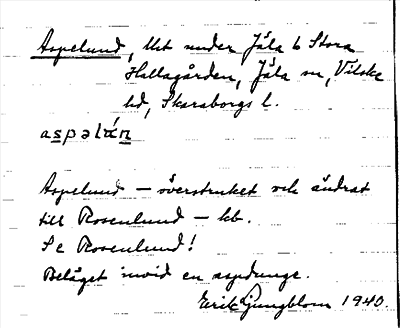 Aspelund, lht under Jäla 6 Stora
Hallagården, Jäla sn, Vilske
hd, Skaraborgs l.
aspəlán
Aspelund – överstruket och ändrat
till Rosenlund – kb.
Se Rosenlund!
Beläget invid en aspdunge.
Erik Ljungblom 1940.